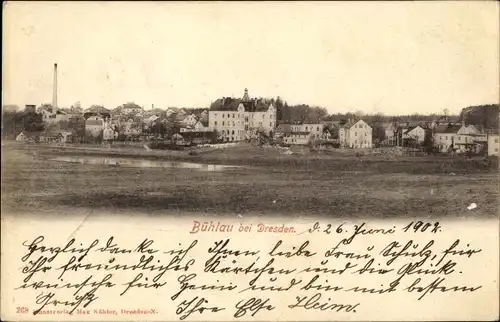 Bühlau bei Dresden.
d. 26. Juni 1902.
Herzlich danke ich Ihnen, liebe Frau Schütz, für
Ihr freundliches Kärtchen und die Glück-
wünsche für Heim und bin mit bestem
Gruß Ihre Else Heim.
268 Kunstverlag Max Köhler, Dresden-N.